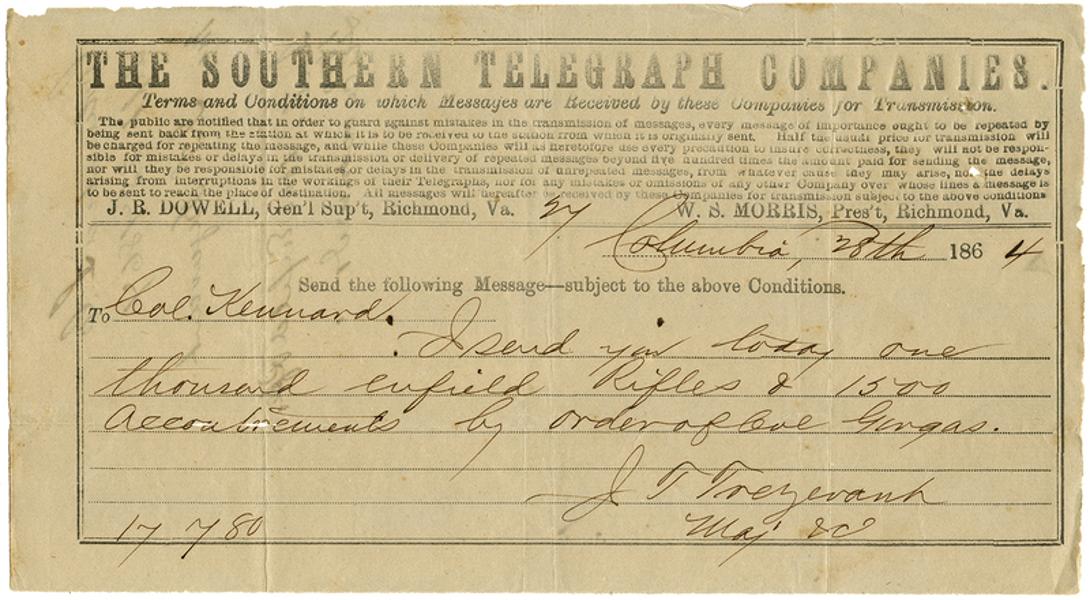 THE SOUTHERN TELEGRAPH COMPANIES.
Terms and Conditions on which Messages are Received by these Companies for Transmission.
The public are notified that in order to guard against mistakes in the transmission of messages, every message of importance ought to be repeated by
being sent back from the station at which it is to be received to the station from which it is originally sent. Half the usual price for transmission will
be charged for repeating the message, and while these Companies will as heretofore use every precaution to insure correctness, they will not be respon-
sible for mistakes or delays in the transmission or delivery of repeated messages beyond five hundred times the amount paid for sending the message,
nor will they be responsible for mistakes or delays in the transmission of unrepeated messages, from whatever cause they may arise, nor the delays
arising from interruptions in the workings of their Telegraphs, nor for any mistakes or omissions of any other Company over whose lines a message is
to be sent to reach the place of destination. All messages will hereafter be received by these Companies for transmission subject to the above conditions
J. R. DOWELL, Gen'l Sup't, Richmond, Va. W. S. MORRIS, Pres't, Richmond, Va.
Columbia, 28th 1864
Send the following Message—subject to the above Conditions.
To Col. Kennard.
I send you today one
thousand enfield Rifles & 1500
Accoutrements by order of Col Gorgas.
J T Trezevant
17 780 Maj &C